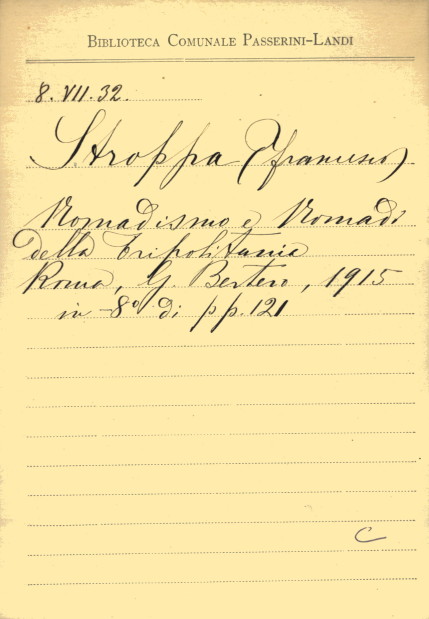 BIBLIOTECA COMUNALE PASSERINI-LANDI
8. VII. 32.
Stroppa (Francesco)
Nomadismo e Nomadi
della Tripolitania
Roma, G. Bertero, 1915
in-8° di pp. 121
C